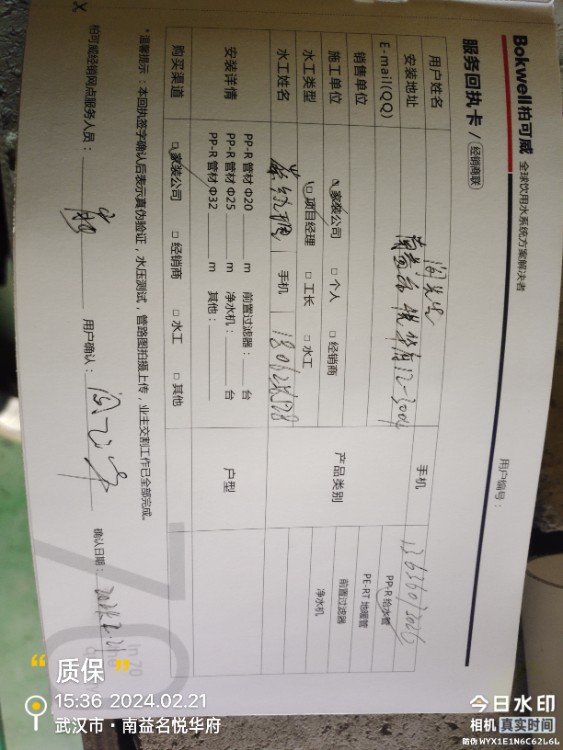 Bokwell柏可威 全球饮用水系统方案解决者
服务回执卡/ 经销商联
用户编号：
用户姓名 闵先生
手机
安装地址 南益名悦华府12-3004
E-mail(QQ)
销售单位
施工单位 家装公司 □ 个人 □ 经销商
水工类型 项目经理 □ 工长 □ 水工
水工姓名
手机
产品类别
PP-R 给水管
PE-RT 地暖管
前置过滤器
净水机
安装详情
PP-R 管材 Φ20 m 前置过滤器： 台
PP-R 管材 Φ25 m 净水机： 台
PP-R 管材 Φ32 m 其他：
户型
购买渠道 家装公司 □ 经销商 □ 水工 □ 其他
*温馨提示：本回执签字确认后表示真伪验证，水压测试，管路图拍摄上传，业主交割工作已全部完成。
柏可威经销网点服务人员：
用户确认：
确认日期：
“ 质保 ”
15:36 2024.02.21
武汉市·南益名悦华府
今日水印
相机 真实时间
防伪 WYX1E1N6C62L6L